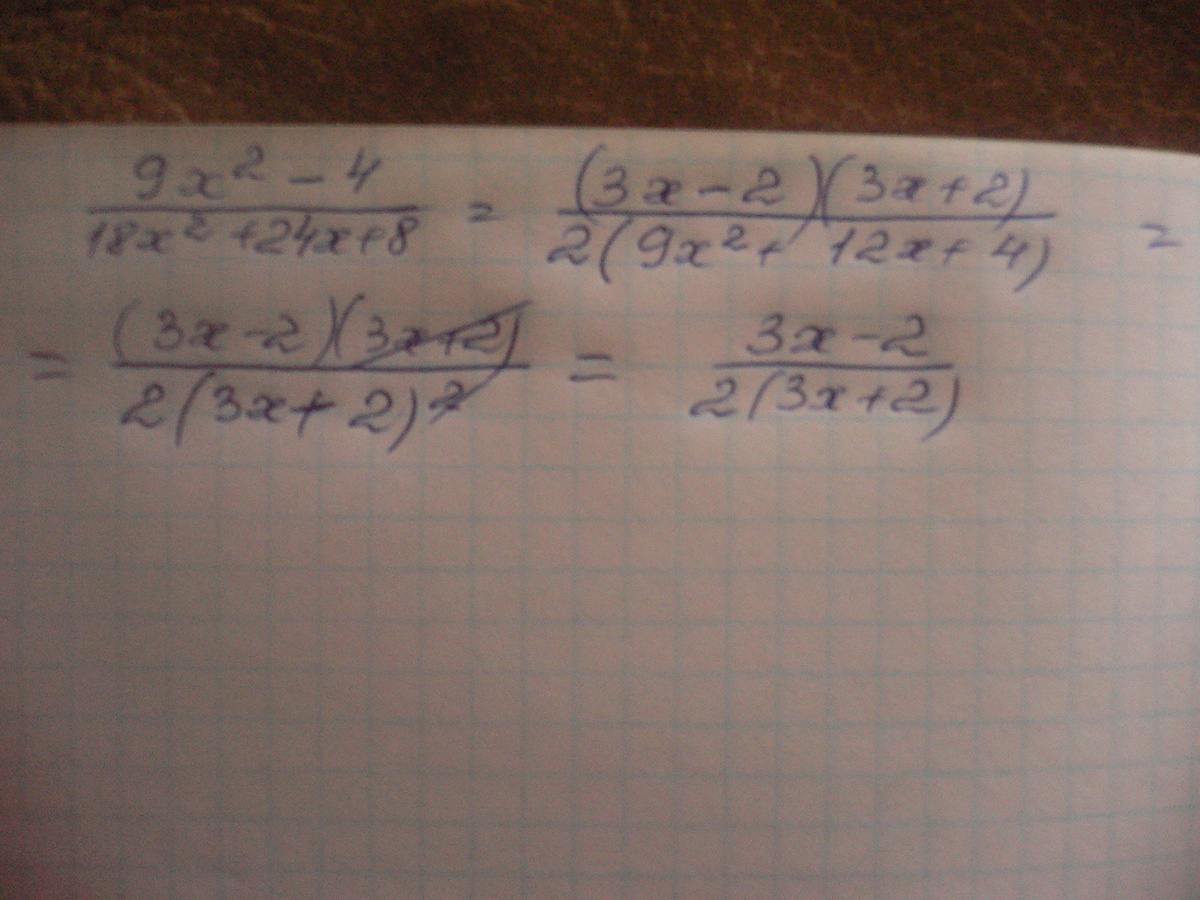 \frac{9x^2 - 4}{18x^2 + 24x + 8} = \frac{(3x - 2)(3x + 2)}{2(9x^2 + 12x + 4)} =
= \frac{(3x - 2)(3x + 2)}{2(3x + 2)^2} = \frac{3x - 2}{2(3x + 2)}